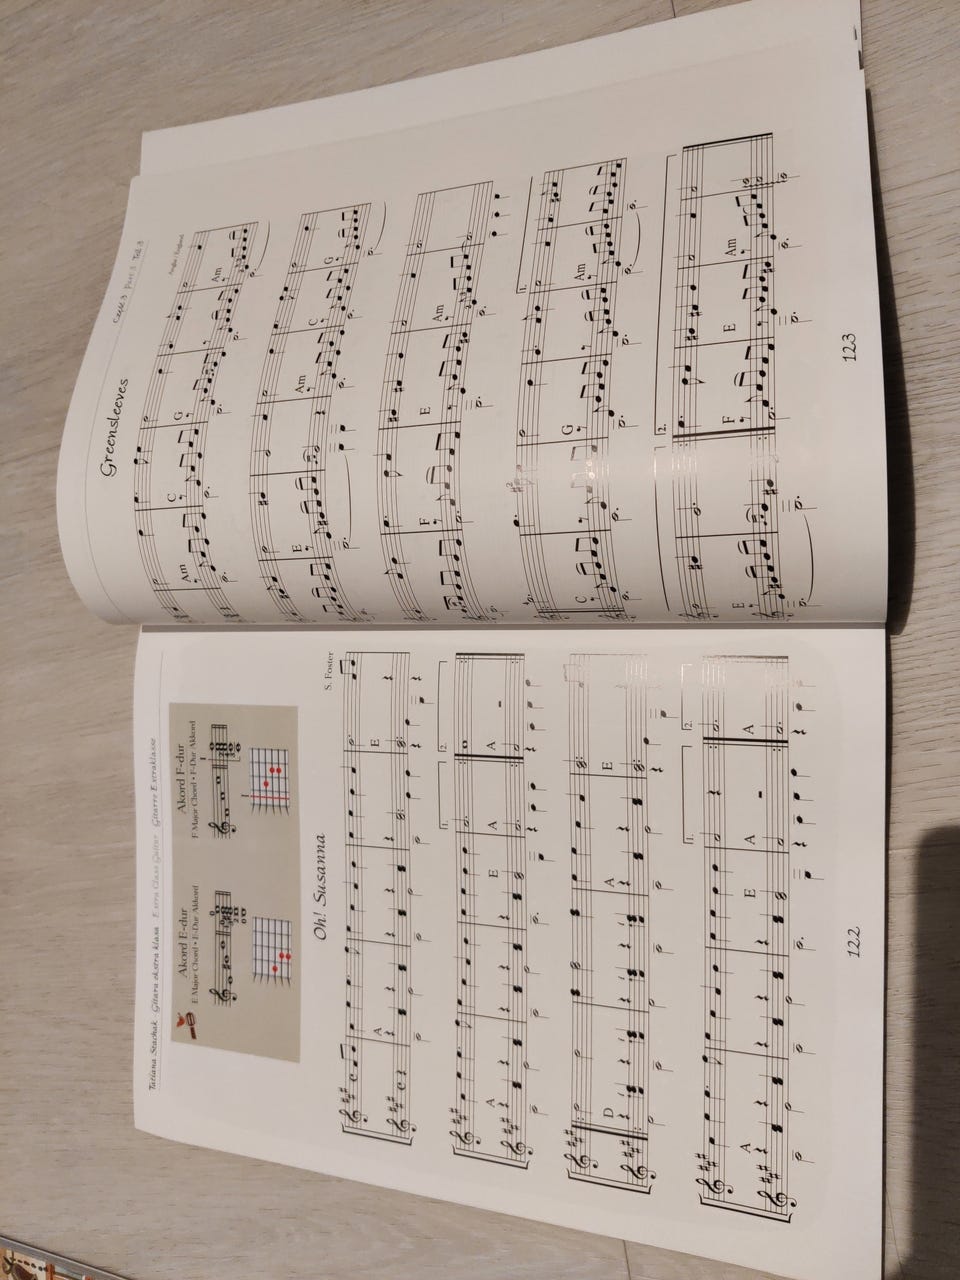 Tatiana Stachak · Gitara ekstra klasa · Extra Class Guitar · Gitarre Extraklasse
Akord E-dur
E Major Chord • E-Dur Akkord
Akord F-dur
F Major Chord • F-Dur Akkord
Oh! Susanna
S. Foster
A E
1. 2.
A E A A
D A E
1. 2.
A E A A
122
Część 3 Part 3 Teil 3
Greensleeves
Anglia / England
Am C G Am
E Am C G
F E Am
1.
C G Am
2.
E F E Am
123